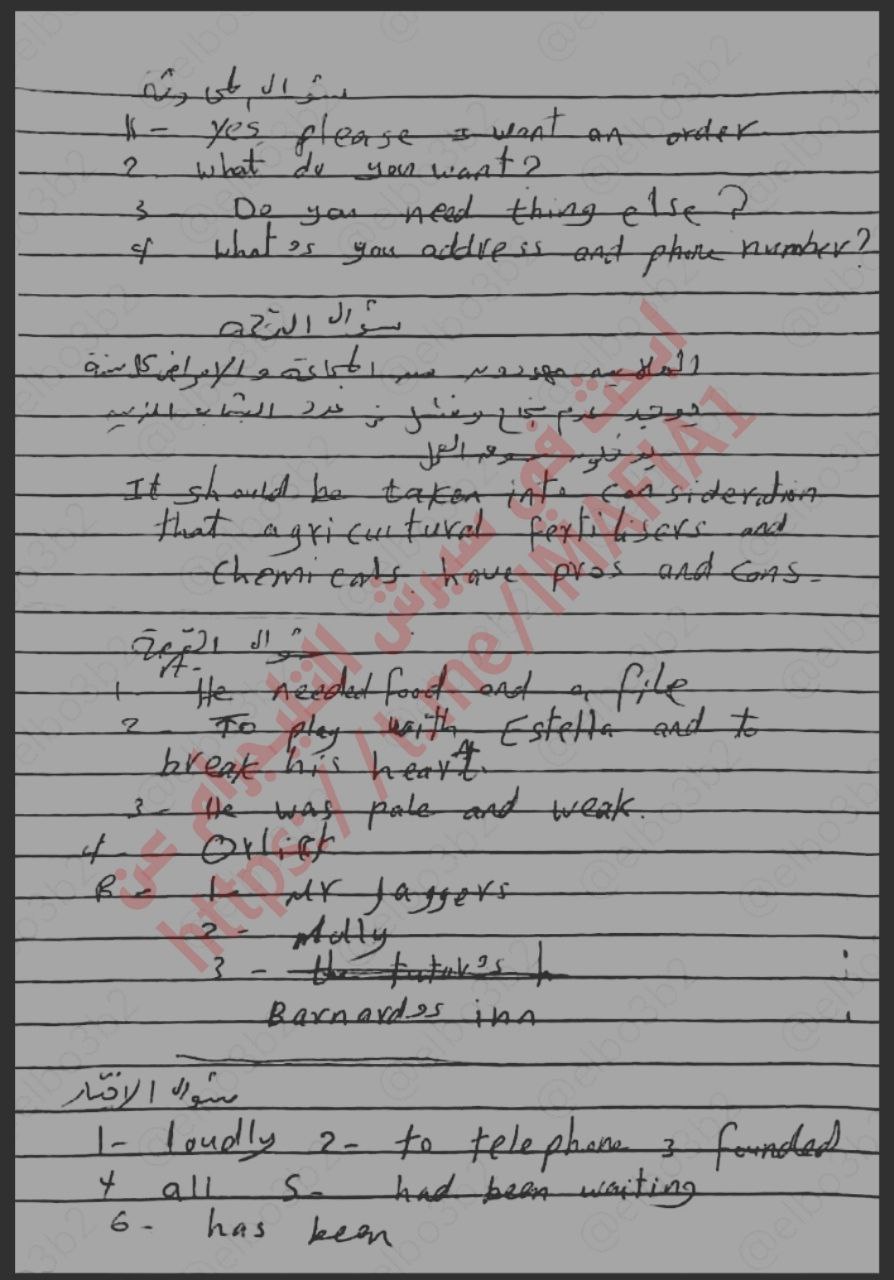 سؤال المحادثة
1- Yes please I want an order
2 What do you want?
3 Do you need thing else?
4 What's you address and phone number?
سؤال الترجمة
الملايين مهددون من المجاعة و الأمراض كل سنة
يوجد عدم نجاح وفشل في عدد الشباب الذين
يدخلون سوق العمل
It should be taken into consideration
that agricultural fertilisers and
chemicals have pros and cons-
سؤال القصة
A-
1- He needed food and a file
2- To play with Estella and to
break his heart.
3- He was pale and weak.
4- Orlick
B- 1- Mr Jaggers
2- Molly
3 - the tutor's h
Barnard's inn
سؤال الاختيار
1- loudly 2- to telephone 3 founded
4 all 5- had been waiting
6- has been
ابحث في سيرش التليجرام عن
https://t.me/1MAFIA1
@elbo3b2